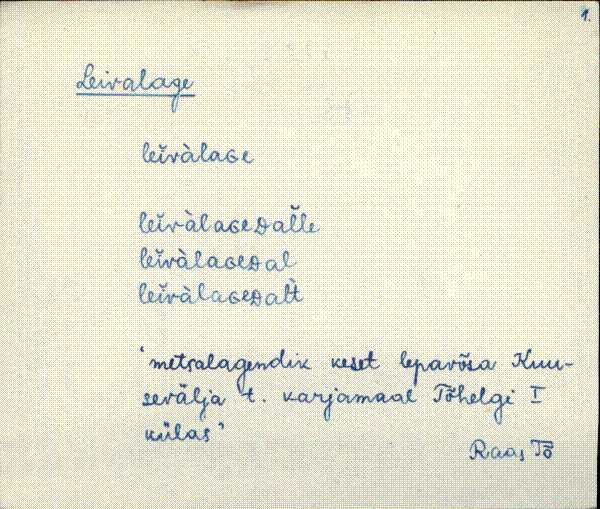 1.
Leivalage
leĭvàlaɢe
leĭvàlaɢeᴅal̆le
leĭvàlaɢeᴅal
leĭvàlaɢeᴅal̀t
'metsalagendik keset lepavõsa Kuu-
sevälja t. karjamaal Tõhelgi I
külas'
Raas Tõ